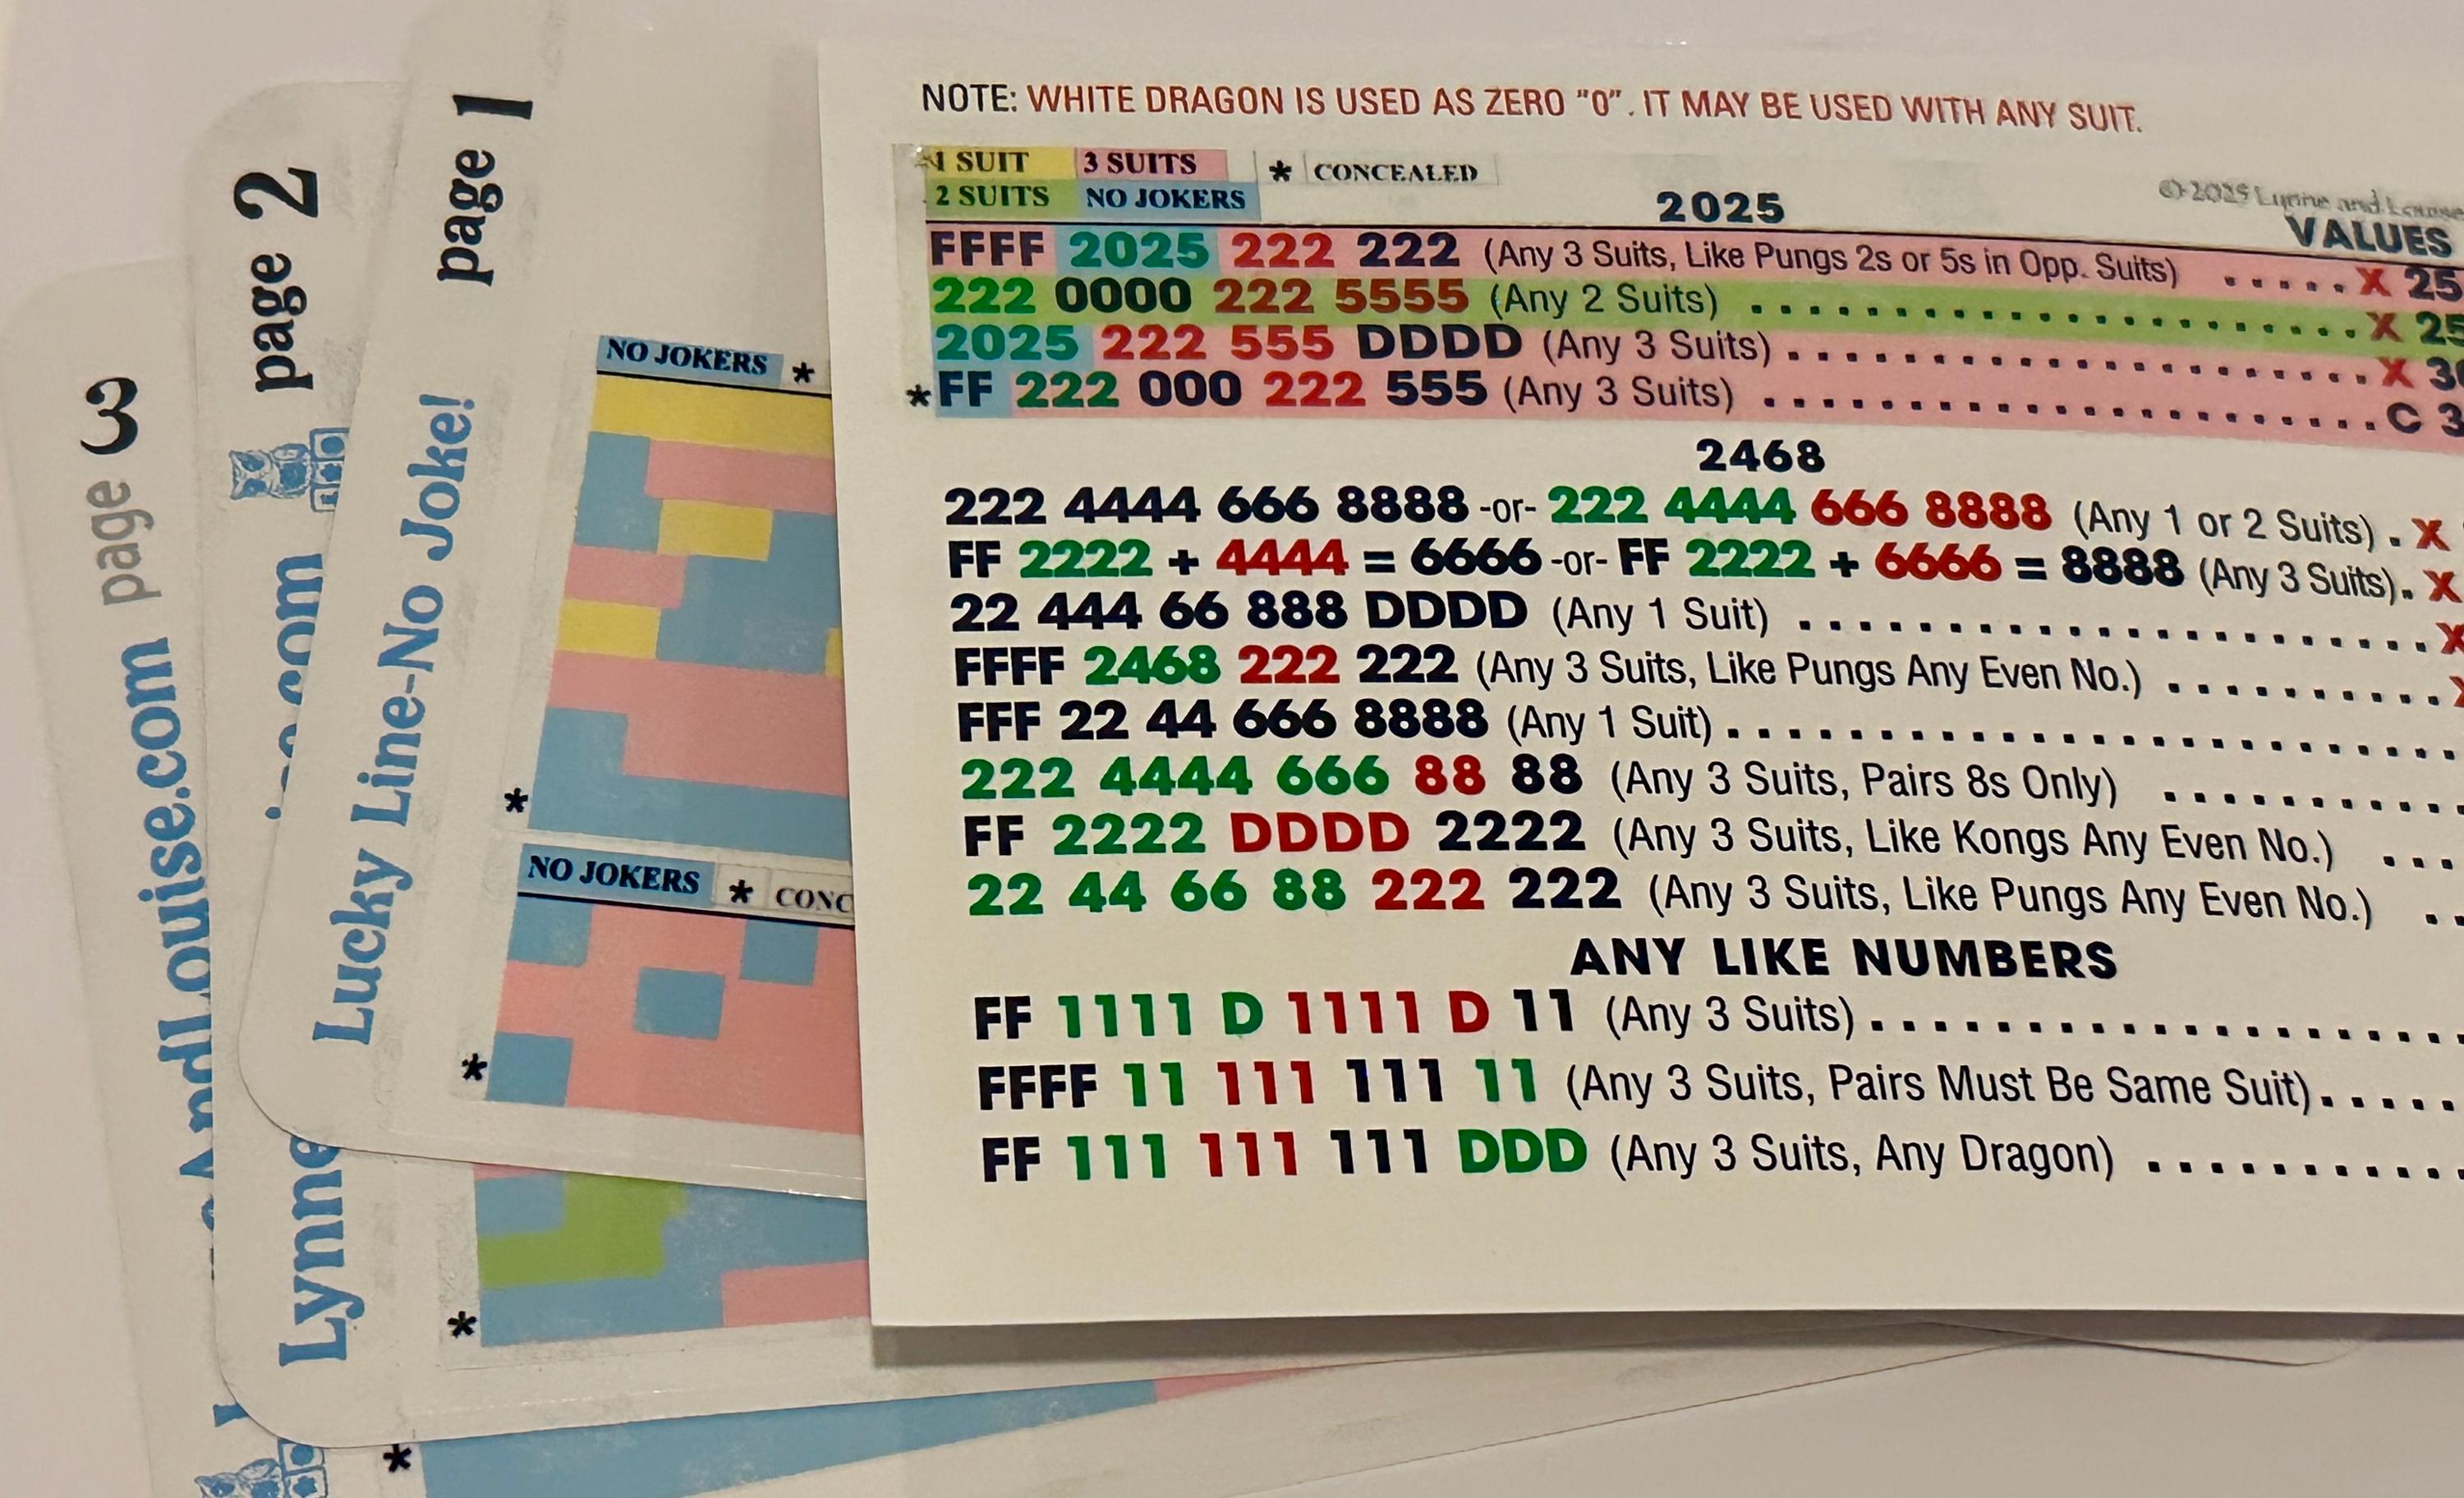 NOTE: WHITE DRAGON IS USED AS ZERO "0". IT MAY BE USED WITH ANY SUIT.
1 SUIT 3 SUITS * CONCEALED
2 SUITS NO JOKERS
© 2025 Lynne and Louise
2025 VALUES
FFFF 2025 222 222 (Any 3 Suits, Like Pungs 2s or 5s in Opp. Suits) ..... X 25
222 0000 222 5555 (Any 2 Suits) ..................... X 25
2025 222 555 DDDD (Any 3 Suits) .................... X 3
*FF 222 000 222 555 (Any 3 Suits) ..................... C 3
2468
222 4444 666 8888 -or- 222 4444 666 8888 (Any 1 or 2 Suits) . X
FF 2222 + 4444 = 6666 -or- FF 2222 + 6666 = 8888 (Any 3 Suits). X
22 444 66 888 DDDD (Any 1 Suit) ..................... X
FFFF 2468 222 222 (Any 3 Suits, Like Pungs Any Even No.) ..........
FFF 22 44 666 8888 (Any 1 Suit) ........................
222 4444 666 88 88 (Any 3 Suits, Pairs 8s Only) ..........
FF 2222 DDDD 2222 (Any 3 Suits, Like Kongs Any Even No.) ...
22 44 66 88 222 222 (Any 3 Suits, Like Pungs Any Even No.) ..
ANY LIKE NUMBERS
FF 1111 D 1111 D 11 (Any 3 Suits) ....................
FFFF 11 111 111 11 (Any 3 Suits, Pairs Must Be Same Suit) .....
FF 111 111 111 DDD (Any 3 Suits, Any Dragon) ...........
page 1
Lucky Line-No Joke!
NO JOKERS *
*
NO JOKERS *
*
page 2
Lynne
.com
*
page 3
AndLouise.com
*